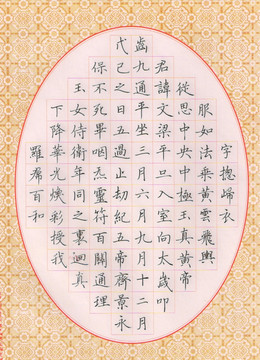 字揔歸衣
服如法乘黃雲飛輿
從思中央中極玉真黃帝
君諱文梁平旦入室向太歲叩
齒九通平坐三月六月九月十二月
代己之日五過止劫紀五帝齊景永
保不死畢咽炁靈符百關通理
玉女侍衛年同之裏迴真
下降華光煥彩授我
羅席百和